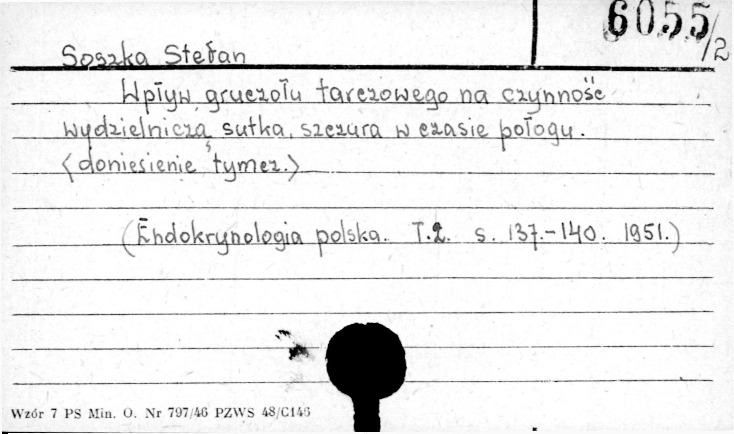 6055/2
Soszka Stefan
Wpływ gruczołu tarczowego na czynność
wydzielniczą sutka szczura w czasie połogu.
<doniesienie tymcz.>
(Endokrynologia polska. T.2. s. 137.-140. 1951.)
Wzór 7 PS Min. O. Nr 797/46 PZWS 48/C146